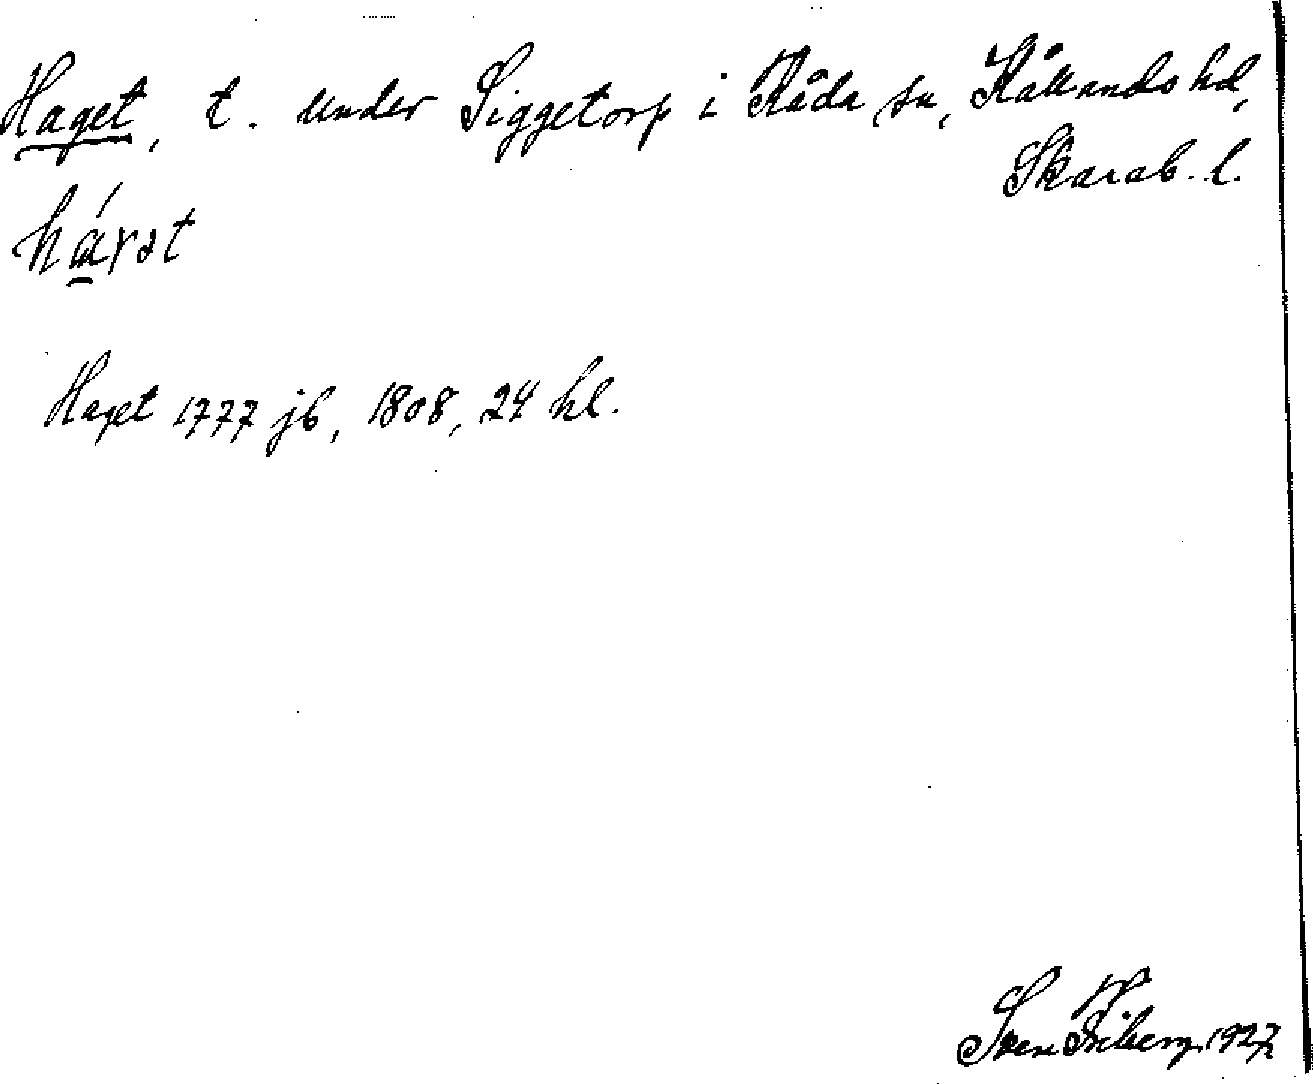 Haget, t. under Siggetorp i Råda sn, Kållands hd,
Skarab. l.
Haget 1777 jb, 1808, 24 hl.
Sven Friberg 1927